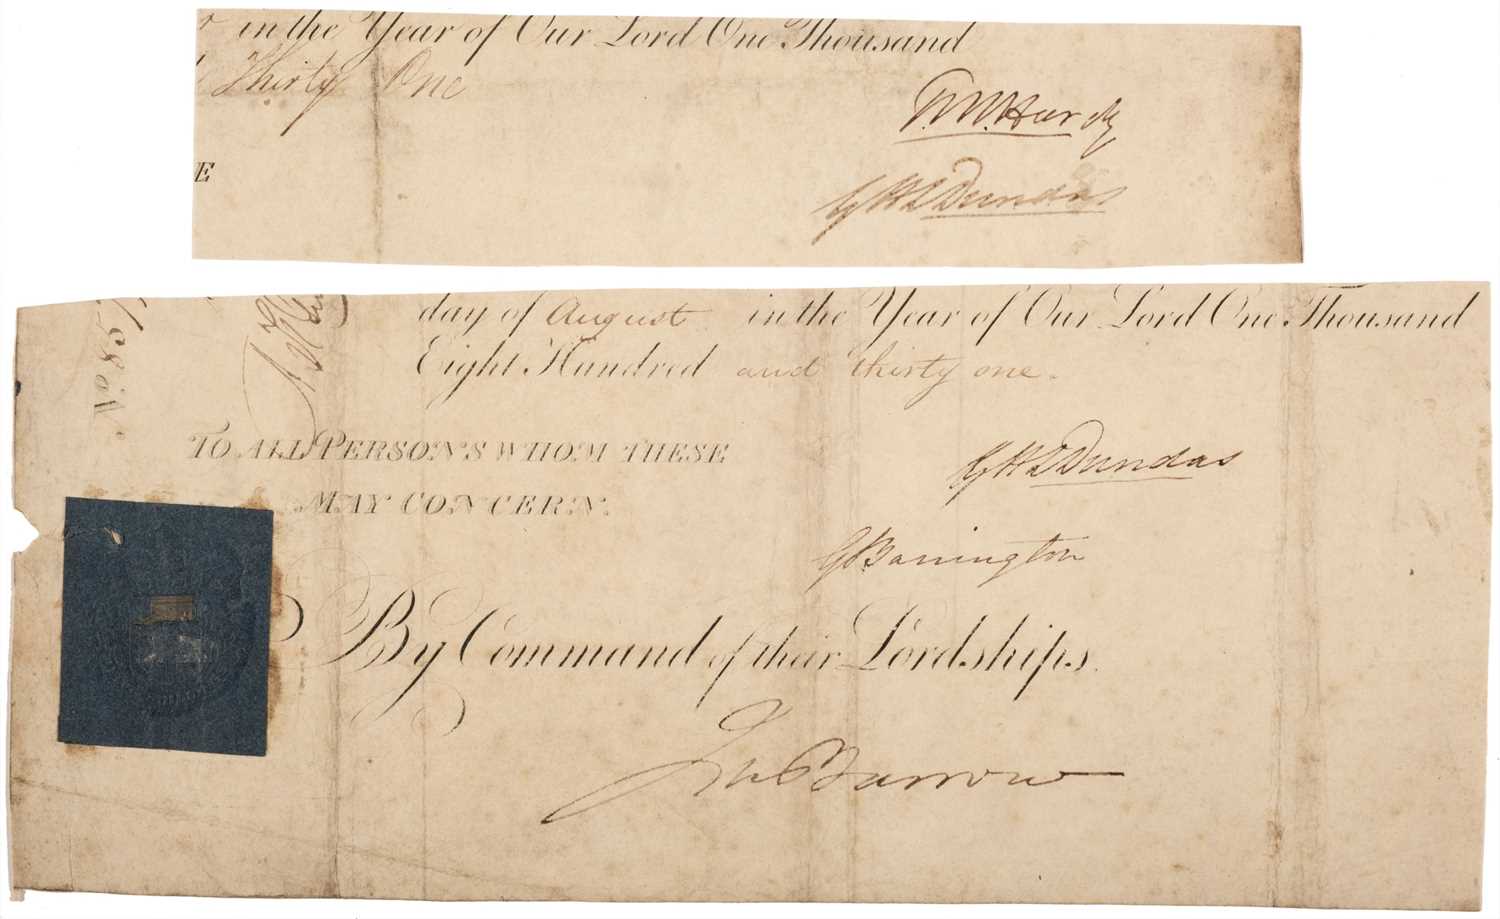 in the Year of Our Lord One Thousand
Thirty One
T. M. Hardy
E
G H L Dundas
day of August in the Year of Our Lord One Thousand
Eight Hundred and thirty one.
TO ALL PERSONS WHOM THESE
MAY CONCERN.
G H L Dundas
G Barrington
By Command of their Lordships.
Jno Barrow